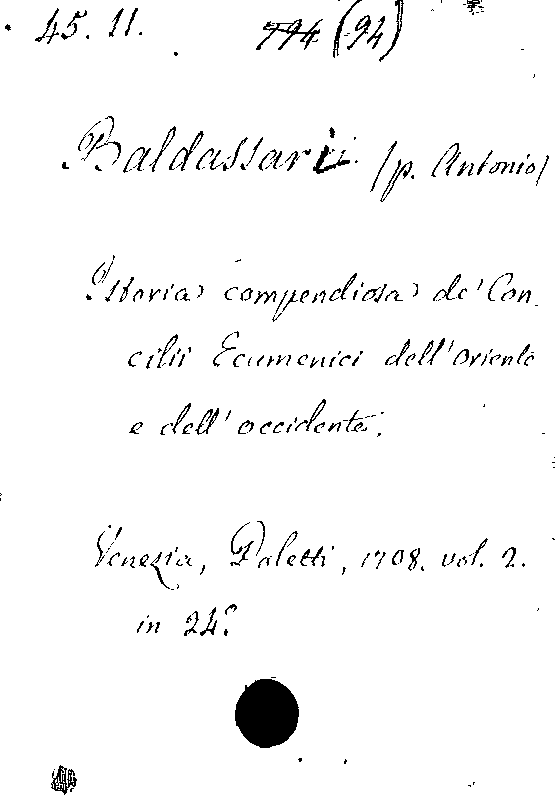 45. 11. 794 (94)
Baldassari (p. Antonio)
Istoria compendiosa de' Con-
cilii Ecumenici dell'oriente
e dell'occidente.
Venezia, Poletti, 1708. vol. 2.
in 24º